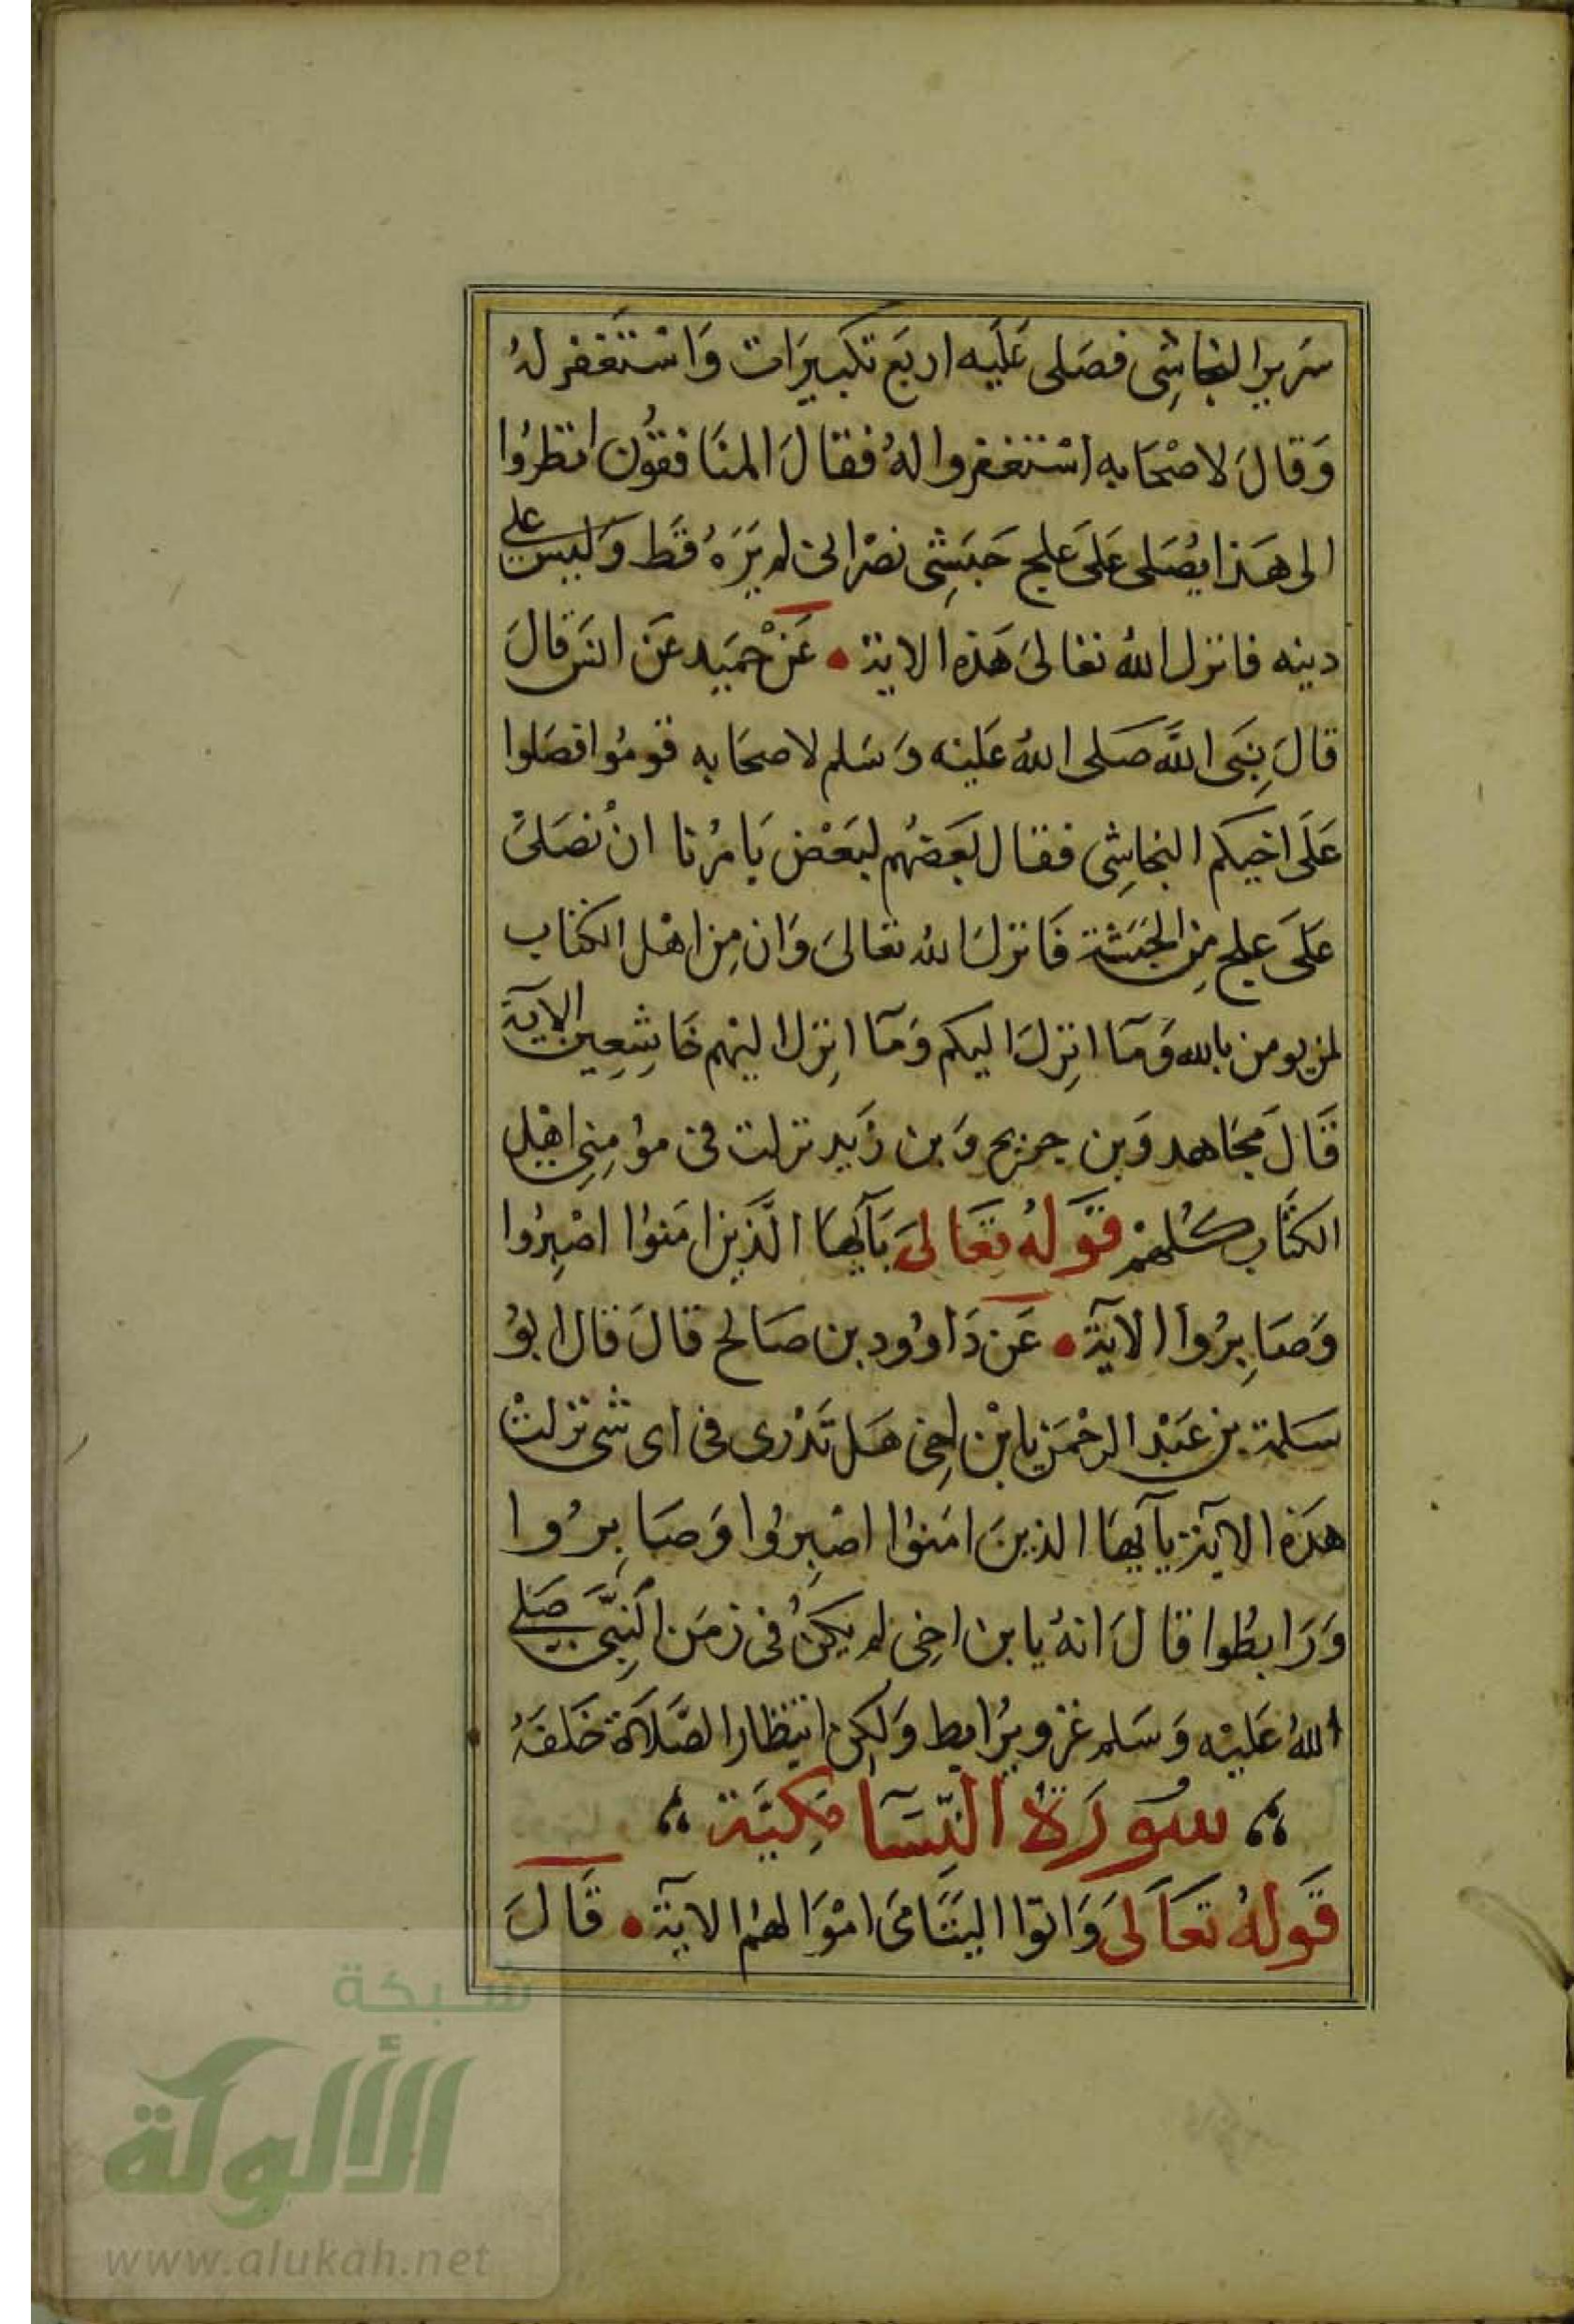 سَرير النجاشِى فصَلى عَلَيه اربَع تكبيرَات وَاسْتَغفر لهُ
وَقالَ لاصْحَابه اسْتغفروا لهُ فقالَ المنَافقوُن انظرُوا
الى هَذا يُصَلى عَلىَ علج حَبَشِى نصْرانى لم يَرَهُ قَط وَليسَ على
دينه فانزل اللهُ تعَالىَ هَذه الاية • عَنْ حمَيد عَن انسَ قالَ
قالَ نِبَى اللَّه صَلى اللهُ عَليْه وَسَلم لاصحَابه قومُوا فصَلوا
عَلَى اخيكم النجاشِى فقال بَعَضهُم لبَعْض يَامُرُنا انْ نصَلىَ
عَلىَ علج مِن الحبَشة فَانزلَ الله تعَالىَ وَان مِن اهْل الكتاب
لمن يومن بالله وَمَآ انِزلَ اليكم وَمَآ انِزل اليْهم خَاشِعِين الآية
قَالَ مجَاهد وَبن جريح وَبن زَيد نزلت فى مؤمِنِى اهْل
الكتَاب كُلهمْ قَوْلهُ تعَالىَ يَآيهَا الَّذيِن امَنوُا اصْبِرُوا
وَصَابِرُوا الآيَة • عَن دَاوُود بن صَالح قالَ قال ابوُ
سَلمَة بن عَبْد الرحْمَن يابْن اخِى هَل تَدْرى فى اى شى نزلتْ
هذَه الآيَة يآيهَا الذينَ امَنوُا اصْبِرُوا وَصَابِرُوا
وَرَابطُوا قالَ انهُ يا بن اخِى لم يكنُ فى زمَن النِبَّى صَلى
اللهُ عَليْه وَسَلم غزو يُرَابط وَلكِن انتِظار الصَّلاَة خَلفَهُ
سُورَةُ النِّسَآ مَكِيَّة
قَولهُ تعَالىَ وَاتوا اليَتَامىَ امْوَالهُم الايَة • قَالَ
شبكة
الألوكة
www.alukah.net